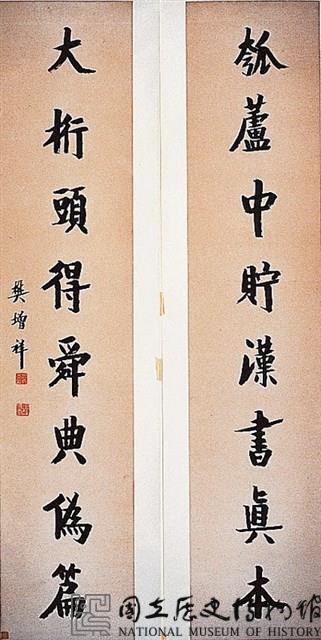 瓠蘆中貯漢書真本
大桁頭得舜典偽篇
樊增祥
國立歷史博物館
NATIONAL MUSEUM OF HISTORY